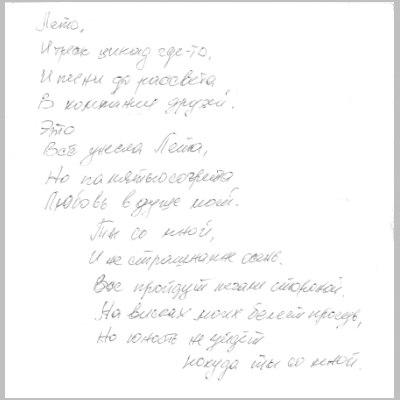 Лето,
И треск цикад где-то,
И песни до рассвета
В компании друзей.
Это
Всё унесла Лета,
Но памятью согрета
Любовь в душе моей.
Ты со мной,
И не страшна мне осень.
Все пройдут печали стороной.
На висках моих белеет проседь,
Но юность не уйдёт
покуда ты со мной.